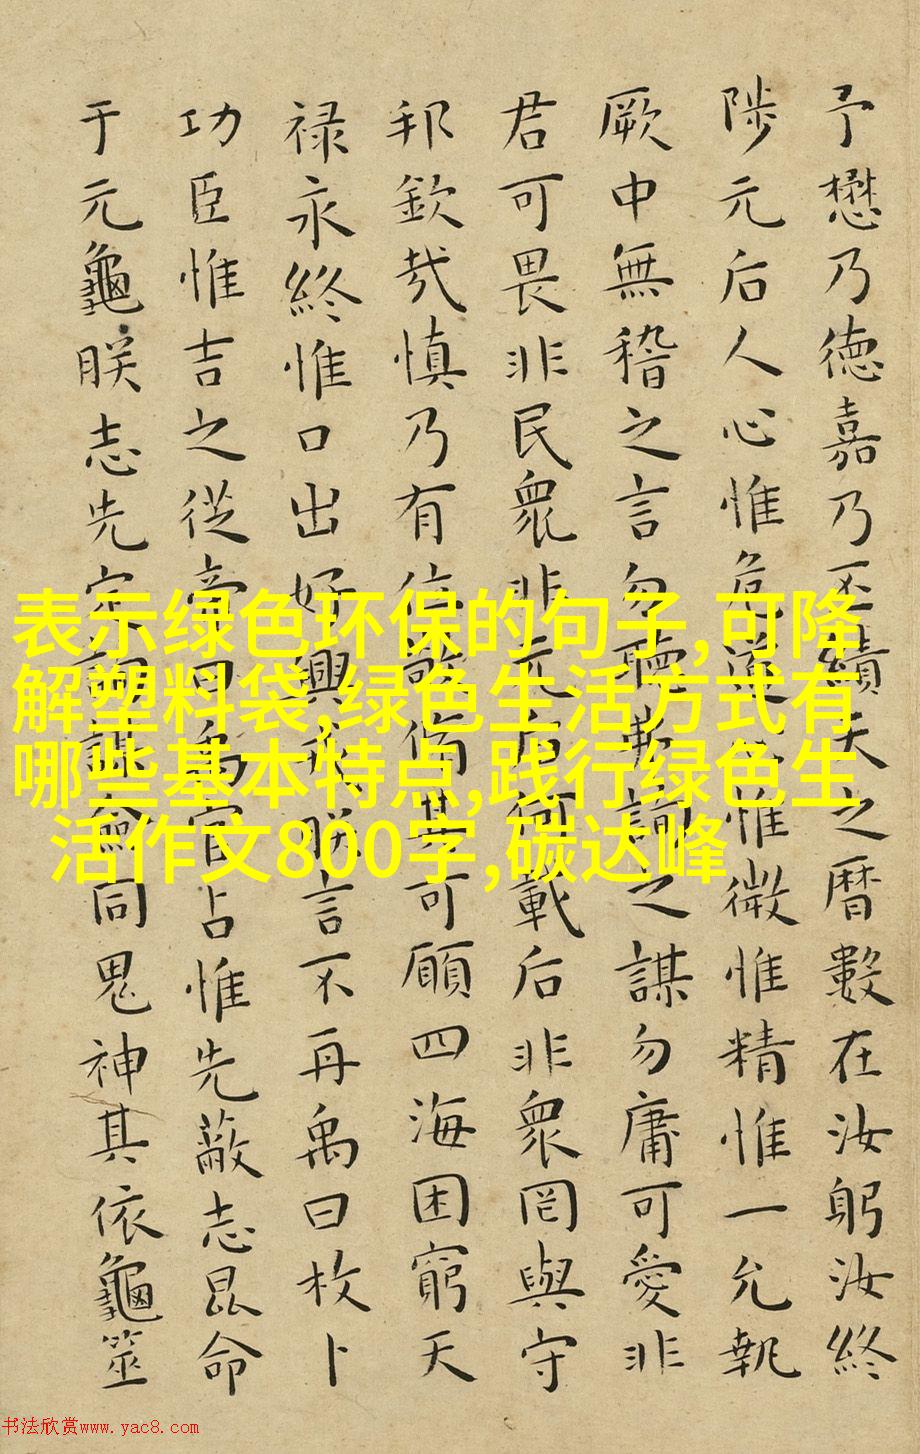 予懋乃德嘉乃丕績天之曆數在汝躬汝終
陟元后人心惟危道心惟微惟精惟一允執
厥中無稽之言勿聽弗詢之謀勿庸可愛非
君可畏非民衆非元后何載后非衆罔與守
邦欽哉慎乃有位敬脩其可願四海困窮天
禄永終惟口出好興戎朕言不再禹曰枚卜
功臣惟吉之從帝曰禹官占惟先蔽志昆命
于元龜朕志先定詢謀僉同鬼神其依龜筮
表示绿色环保的句子,可降
解塑料袋,绿色生活方式有
哪些基本特点,践行绿色生
活作文800字,碳达峰
书法欣赏www.yac8.com